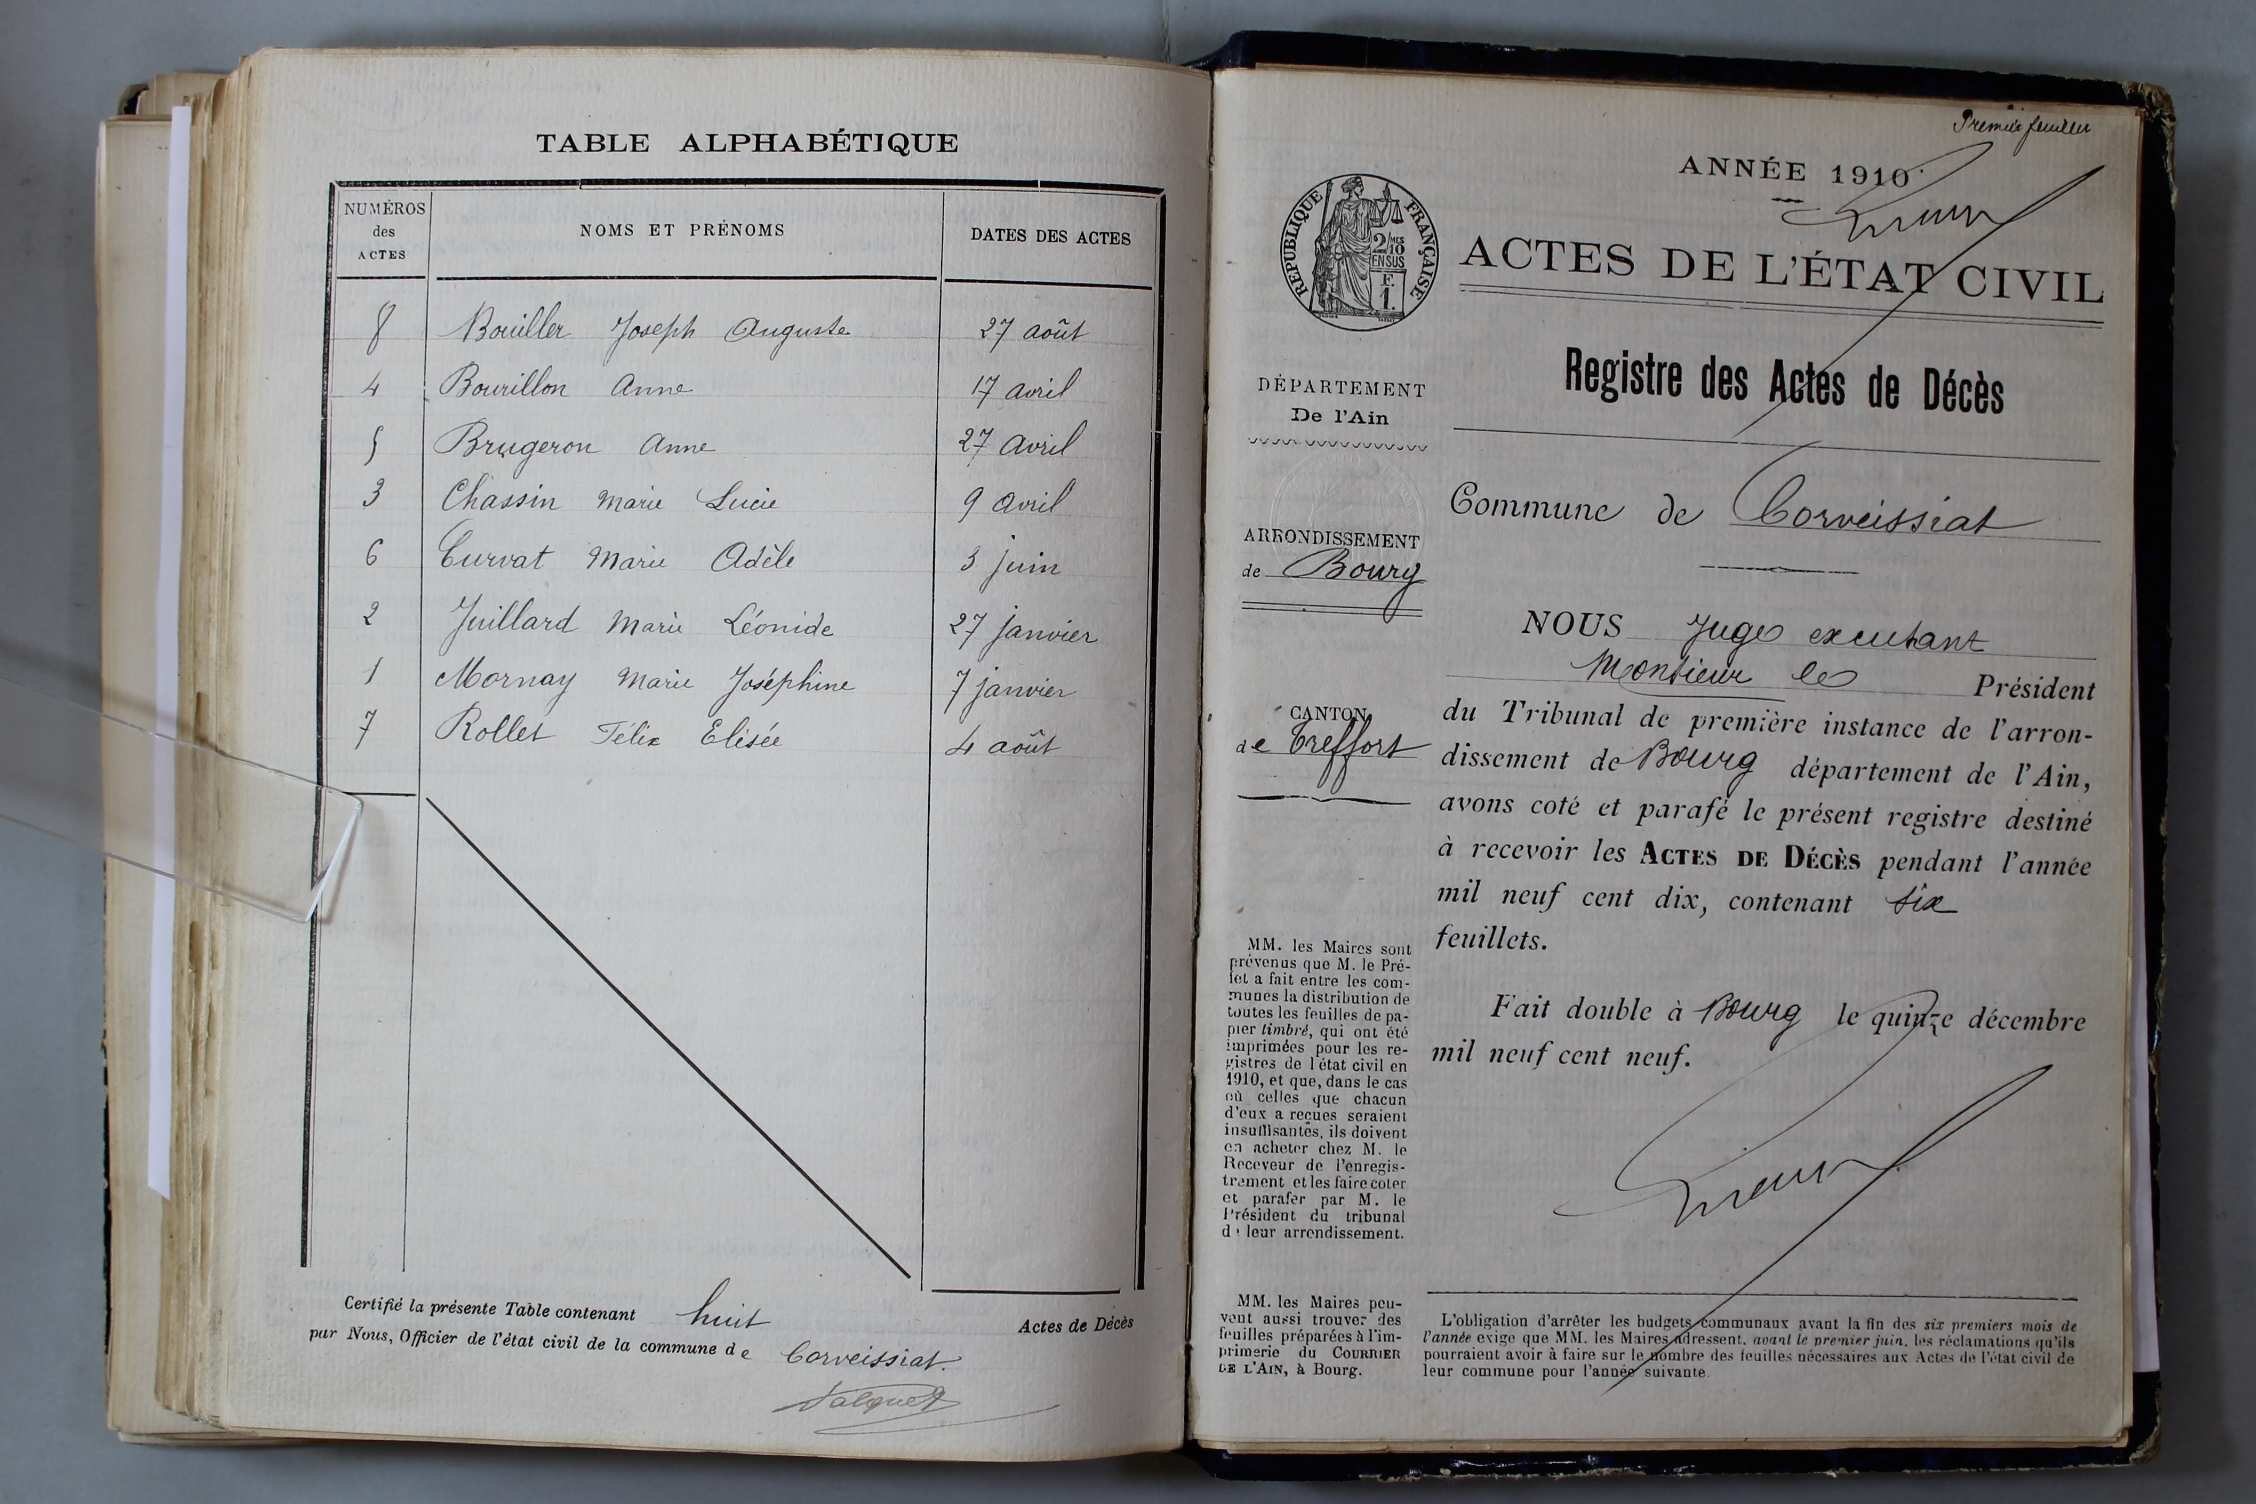 TABLE ALPHABÉTIQUE
NUMÉROS des ACTES NOMS ET PRÉNOMS DATES DES ACTES
8 Bouiller Joseph Auguste 27 août
4 Bourillon Anne 17 avril
5 Brugeron Anne 27 avril
3 Chassin Marie Lucie 9 avril
6 Curvat Marie Adèle 3 juin
2 Juillard Marie Léonide 27 janvier
1 Mornay Marie Joséphine 7 janvier
7 Rollet Félix Elisée 4 août
Certifié la présente Table contenant huit Actes de Décès
par Nous, Officier de l'état civil de la commune de Corveissiat.
Premier feuillet
ANNÉE 1910
RÉPUBLIQUE FRANÇAISE
2/MES
10
EN SUS
F.
1.
ACTES DE L'ÉTAT CIVIL
Registre des Actes de Décès
DÉPARTEMENT
De l'Ain
ARRONDISSEMENT
de Bourg
CANTON
de Treffort
MM. les Maires sont
prévenus que M. le Pré-
fet a fait entre les com-
munes la distribution de
toutes les feuilles de pa-
pier timbré, qui ont été
imprimées pour les re-
gistres de l'état civil en
1910, et que, dans le cas
où celles que chacun
d'eux a reçues seraient
insuffisantes, ils doivent
en acheter chez M. le
Receveur de l'enregis-
trement et les faire coter
et parafer par M. le
Président du tribunal
de leur arrondissement.
MM. les Maires peu-
vent aussi trouver des
feuilles préparées à l'im-
primerie du COURRIER
DE L'AIN, à Bourg.
Commune de Corveissiat
NOUS Juge
Monsieur le Président
du Tribunal de première instance de l'arron-
dissement de Bourg département de l'Ain,
avons coté et parafé le présent registre destiné
à recevoir les ACTES DE DÉCÈS pendant l'année
mil neuf cent dix, contenant six
feuillets.
Fait double à Bourg le quinze décembre
mil neuf cent neuf.
L'obligation d'arrêter les budgets communaux avant la fin des six premiers mois de
l'année exige que MM. les Maires adressent, avant le premier juin, les réclamations qu'ils
pourraient avoir à faire sur le nombre des feuilles nécessaires aux Actes de l'état civil de
leur commune pour l'année suivante.